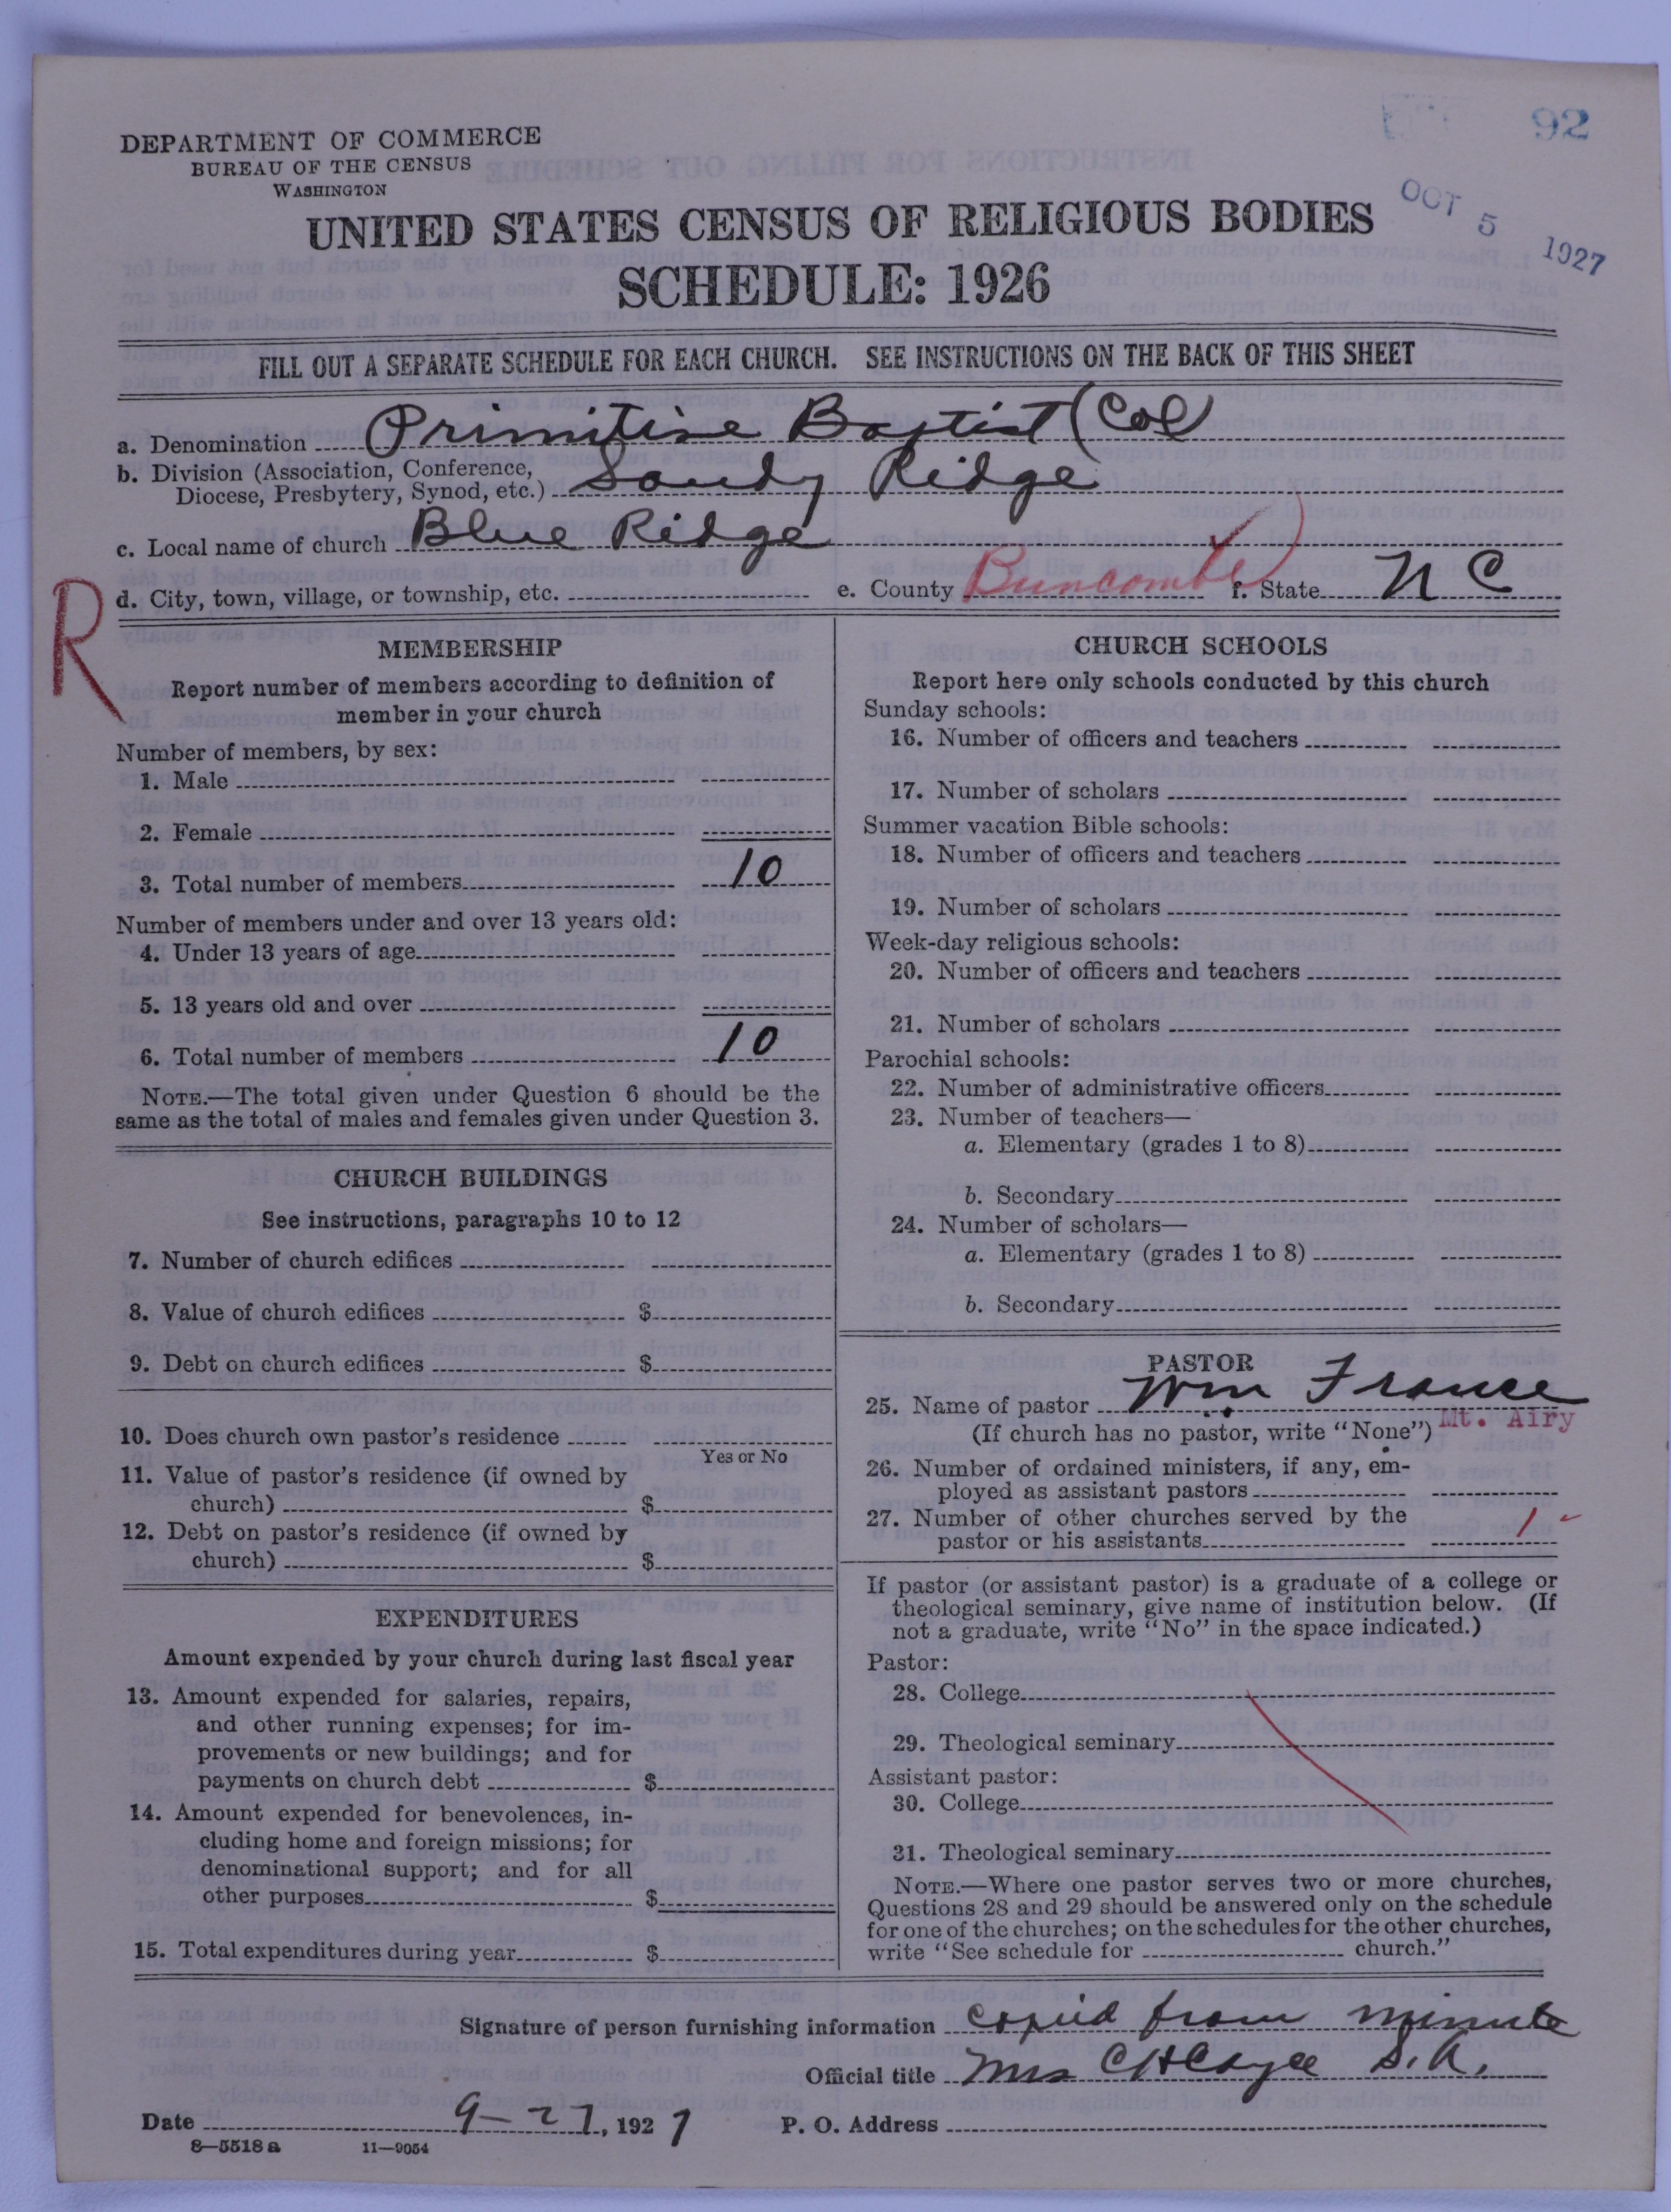 92
DEPARTMENT OF COMMERCE
BUREAU OF THE CENSUS
WASHINGTON
OCT 5 1927
UNITED STATES CENSUS OF RELIGIOUS BODIES
SCHEDULE: 1926
FILL OUT A SEPARATE SCHEDULE FOR EACH CHURCH. SEE INSTRUCTIONS ON THE BACK OF THIS SHEET
a. Denomination Primitive Baptist (Col)
b. Division (Association, Conference,
Diocese, Presbytery, Synod, etc.) Sandy Ridge
c. Local name of church Blue Ridge
R
d. City, town, village, or township, etc. e. County Buncombe f. State N C
MEMBERSHIP
Report number of members according to definition of
member in your church
Number of members, by sex:
1. Male
2. Female
3. Total number of members 10
Number of members under and over 13 years old:
4. Under 13 years of age
5. 13 years old and over
6. Total number of members 10
NOTE.—The total given under Question 6 should be the
same as the total of males and females given under Question 3.
CHURCH BUILDINGS
See instructions, paragraphs 10 to 12
7. Number of church edifices
8. Value of church edifices $
9. Debt on church edifices $
10. Does church own pastor's residence
Yes or No
11. Value of pastor's residence (if owned by
church) $
12. Debt on pastor's residence (if owned by
church) $
EXPENDITURES
Amount expended by your church during last fiscal year
13. Amount expended for salaries, repairs,
and other running expenses; for im-
provements or new buildings; and for
payments on church debt $
14. Amount expended for benevolences, in-
cluding home and foreign missions; for
denominational support; and for all
other purposes $
15. Total expenditures during year $
CHURCH SCHOOLS
Report here only schools conducted by this church
Sunday schools:
16. Number of officers and teachers
17. Number of scholars
Summer vacation Bible schools:
18. Number of officers and teachers
19. Number of scholars
Week-day religious schools:
20. Number of officers and teachers
21. Number of scholars
Parochial schools:
22. Number of administrative officers
23. Number of teachers—
a. Elementary (grades 1 to 8)
b. Secondary
24. Number of scholars—
a. Elementary (grades 1 to 8)
b. Secondary
PASTOR
25. Name of pastor Wm France
(If church has no pastor, write "None") Mt. Airy
26. Number of ordained ministers, if any, em-
ployed as assistant pastors
27. Number of other churches served by the
pastor or his assistants 1
If pastor (or assistant pastor) is a graduate of a college or
theological seminary, give name of institution below. (If
not a graduate, write "No" in the space indicated.)
Pastor:
28. College
29. Theological seminary
Assistant pastor:
30. College
31. Theological seminary
NOTE.—Where one pastor serves two or more churches,
Questions 28 and 29 should be answered only on the schedule
for one of the churches; on the schedules for the other churches,
write "See schedule for church."
Signature of person furnishing information copied from minute
Official title Mrs C H Cayce S.A.
Date 9-27, 1927 P. O. Address
8—5518 a 11—9054